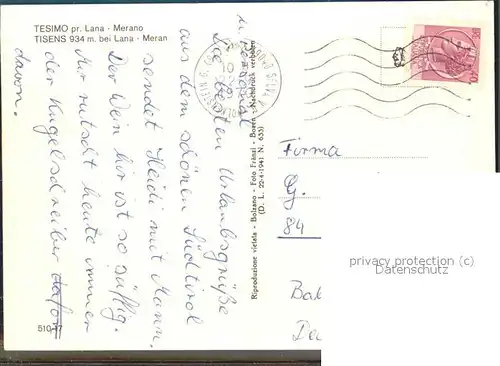 TESIMO pr. Lana - Merano
TISENS 934 m. bei Lana - Meran
Die besten Urlaubsgrüße
aus dem schönen Südtirol
sendet Heidi mit Mann.
Der Wein hier ist so süffig.
Mir rutscht heute immer
der Kugelschreiber dafon
davon.
510-17
Riproduzione vietata - Bolzano - Foto Fränzl - Bozen - Nachdruck verboten
(D. L. 22-4-1941 N. 633)
Firma
G.
84
privacy protection (c)
Datenschutz